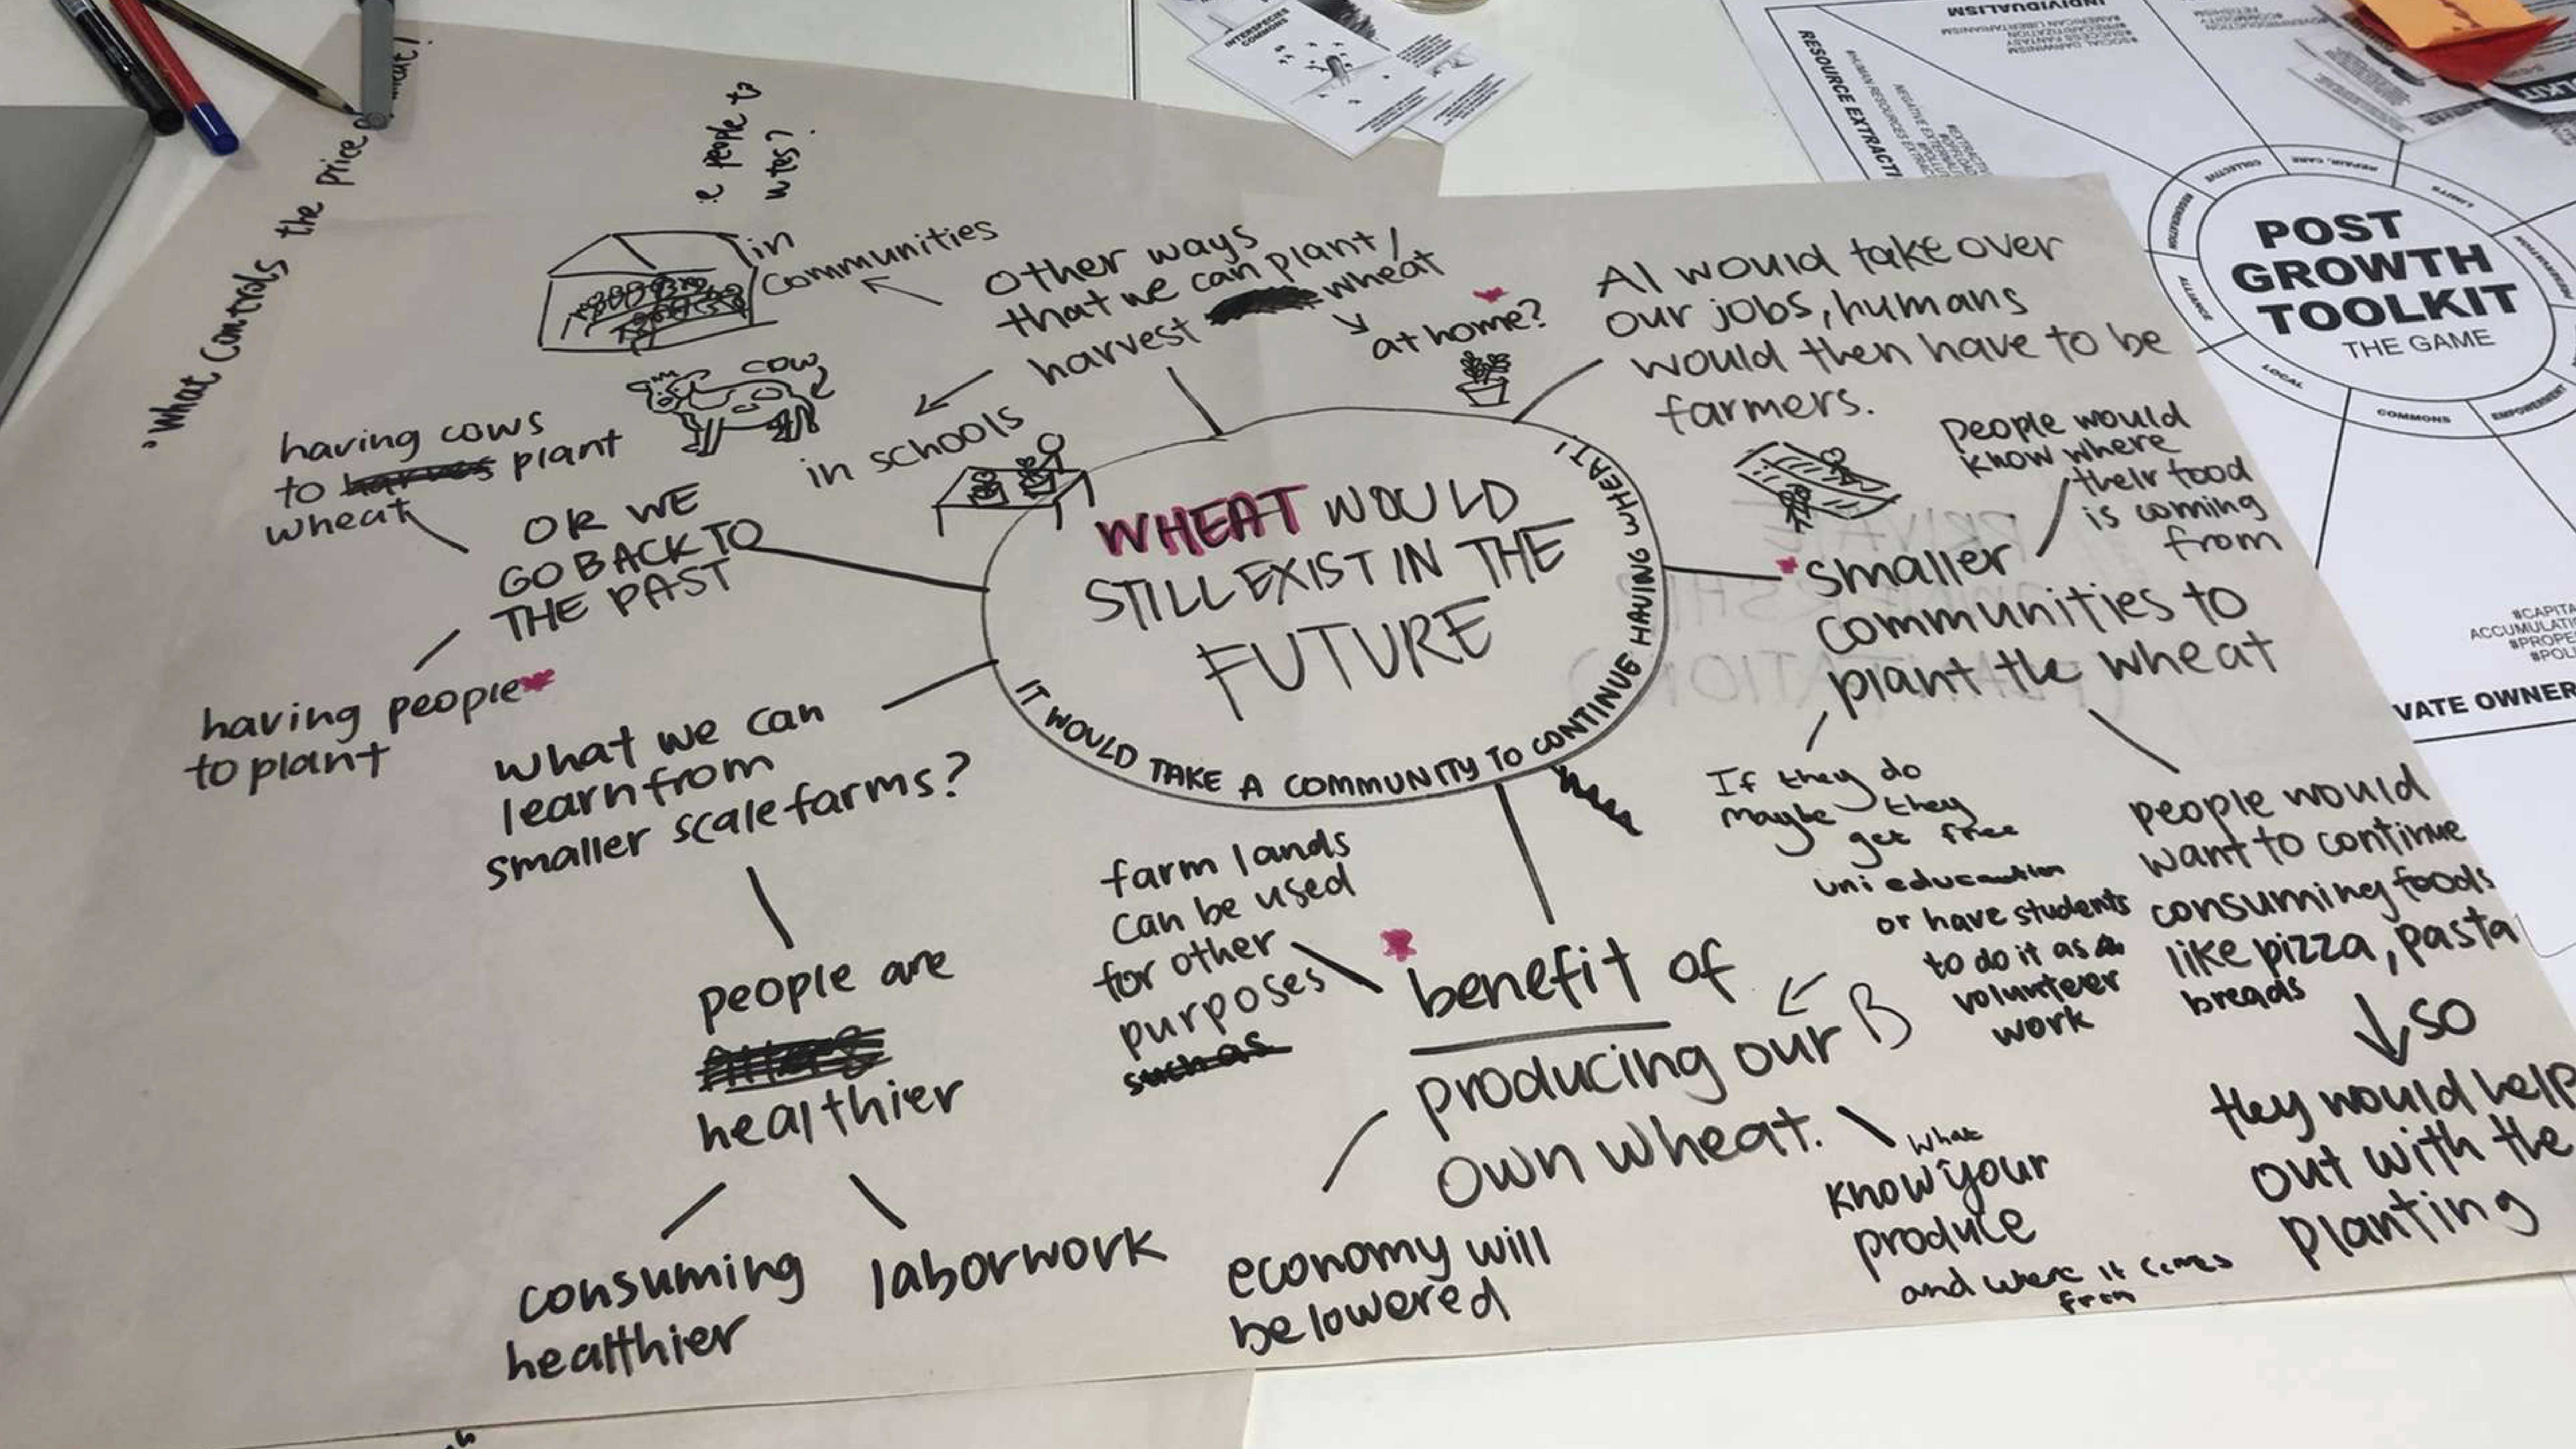 "What controls the price
e people to
in
communities
other ways
that we can plant/
harvest wheat
at home?
in schools
cow
having cows
to plant
wheat
OR WE
GO BACK TO
THE PAST
having people
to plant
what we can
learn from
smaller scale farms?
people are
healthier
consuming
healthier
laborwork
WHEAT WOULD
STILL EXIST IN THE
FUTURE
IT WOULD TAKE A COMMUNITY TO CONTINUE HAVING WHEAT!
AI would take over
our jobs, humans
would then have to be
farmers.
People would
know where
their food
is coming
from
smaller
communities to
plant the wheat
If they do
maybe they
get free
uni education
or have students
to do it as
volunteer
work
people would
want to continue
consuming foods
like pizza, pasta
breads
so
they would help
out with the
planting
farm lands
can be used
for other
purposes
such as
benefit of
producing our
own wheat.
B
economy will
be lowered
what
know your
produce
and where it comes
from
INTERSPECIES
COMMONS
INDIVIDUALISM
#AMERICAN LIBERTARIANISM
#SOCIAL DARWINISM
RESOURCE EXTRACTI
POST
GROWTH
TOOLKIT
THE GAME
COLLECTIVE
REPAIR, CARE
LIMITS
REGENERATION
ALLIANCE
LOCAL
COMMONS
EMPOWERMENT
#CAPITA
ACCUMULATI
#PROPE
#POL
VATE OWNER